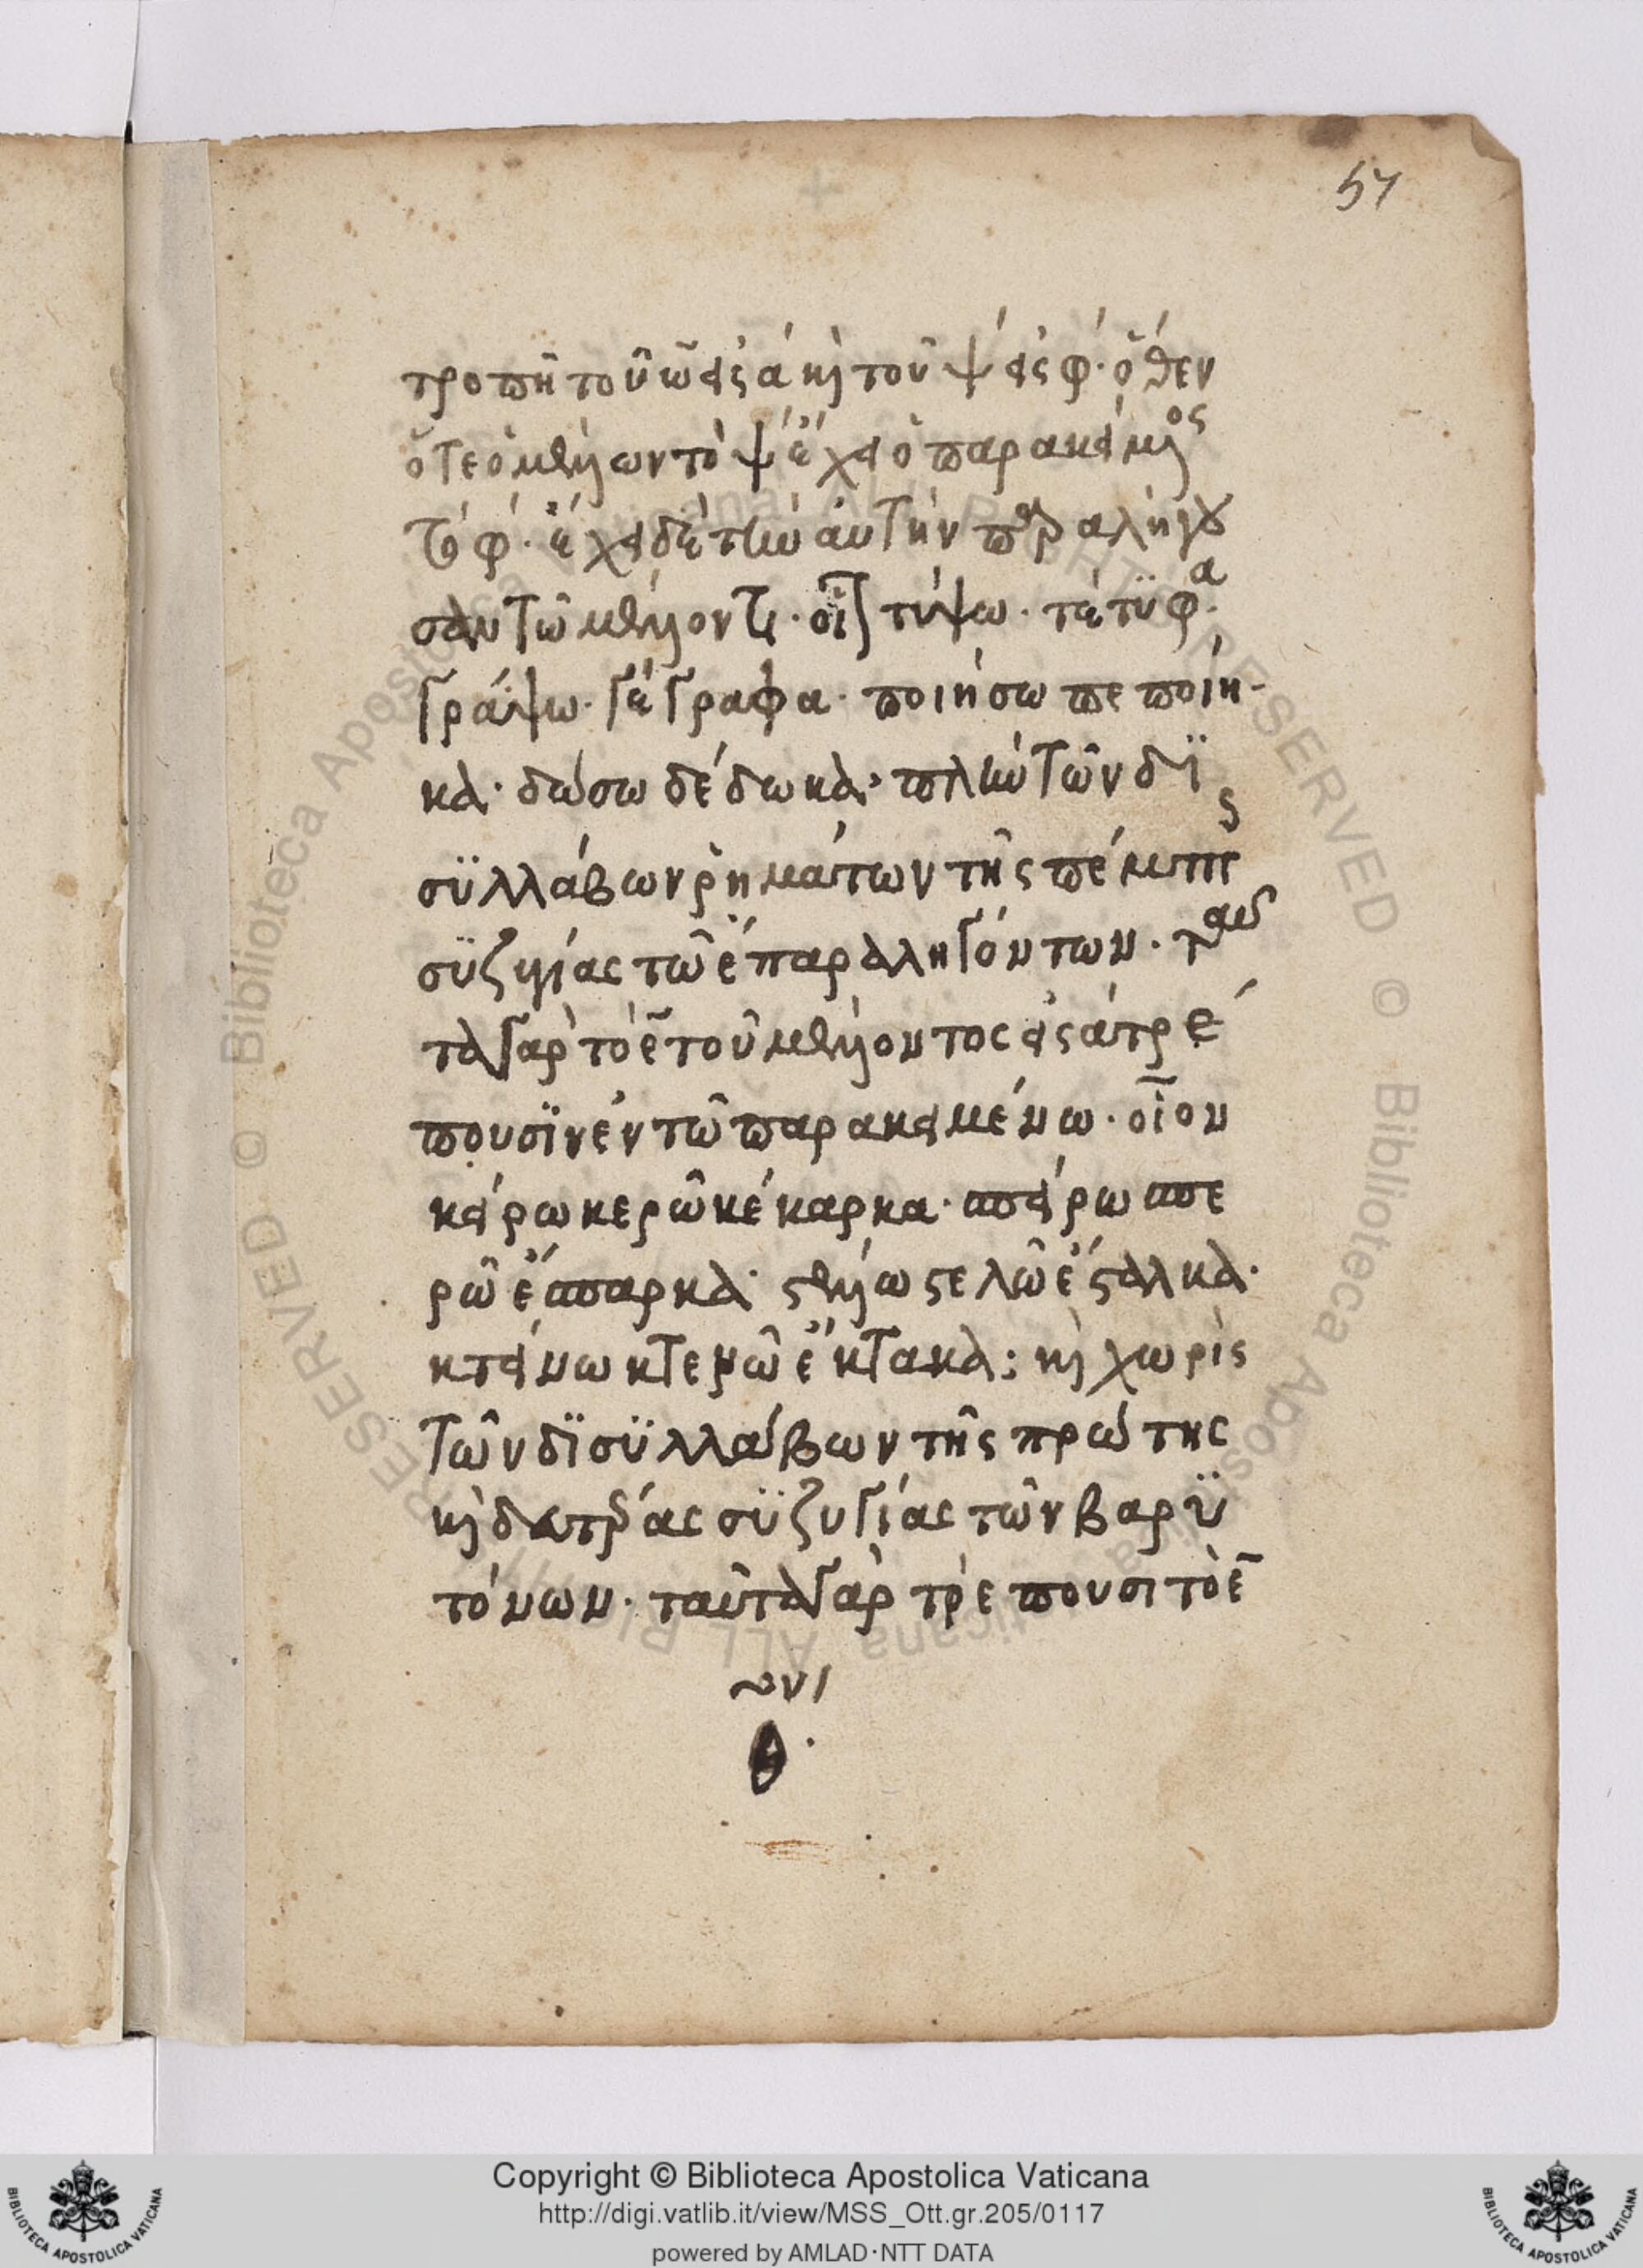 57
τροπῆ τοῦ ω̄ εἰς ά κὶ τοῦ ψ́ εἰς φ́· ὅθεν
ὅτε ὁ μέλλων τὸ ψ́ ἔχει ὁ παρακείμενος
τὸ φ́· ἔχει δὲ τὴν αὐτὴν παραλήγου
σαν τῶ μέλλοντι· οἷον τύψω· τέτϋφα·
γράψω· γέγραφα· ποιήσω πεποίη-
κα· δώσω δέδωκα· πλὴν τῶν δϊ
σϋλλάβων ρημάτων τῆς πέμπτης
σϋζυγίας τῶ ε̄ παραληγόντων· ταῦ
τα γὰρ τὸ ε̄ τοῦ μέλλοντος εἰς ά τρέ
πουσϊν ἐν τῶ παρακειμένω· οἷον
κείρω κερῶ κέκαρκα· σπείρω σπε
ρῶ ἔσπαρκα· στέλλω στελῶ ἔσταλκα·
κτείνω κτενῶ ἔκτακα: κὶ χωρὶς
τῶν δϊσϋλλάβων τῆς πρώτης
κὶ δευτέρας σϋζυγίας τῶν βαρϋ
τόνων· ταῦτα γὰρ τρέπουσι τὸ ε̄
Copyright © Biblioteca Apostolica Vaticana
http://digi.vatlib.it/view/MSS_Ott.gr.205/0117
powered by AMLAD·NTT DATA
BIBLIOTECA APOSTOLICA VATICANA
BIBLIOTECA APOSTOLICA VATICANA